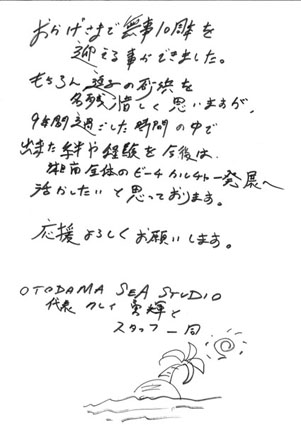 おかげさまで無事10周年を
迎える事ができました。
もちろん逗子の砂浜を
名残惜しく思いますが、
9年間過ごした時間の中で
出来た絆や経験を今後は
全体のビーチカルチャー発展へ
活かしたいと思っております。
応援よろしくお願いします。
OTODAMA SEA STUDIO
代表 と
スタッフ一同